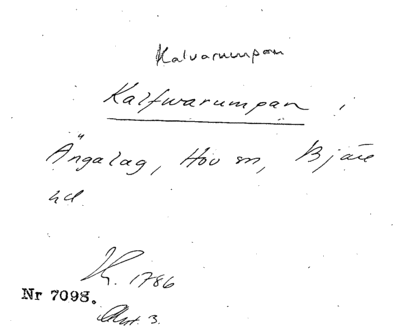 Kalvarumpan
Kalfwarumpan,
Ängalag, Hov sn, Bjäre
hd
1786
Nr 7098.
3.